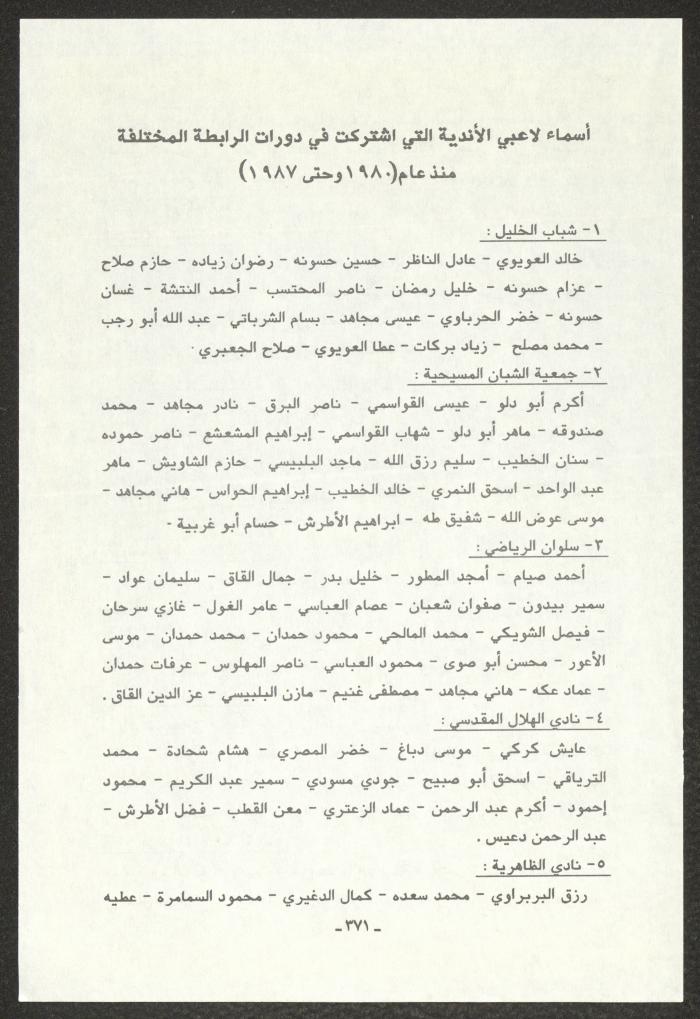 أسماء لاعبي الأندية التي اشتركت في دورات الرابطة المختلفة
منذ عام(١٩٨٠وحتى ١٩٨٧)
١- شباب الخليل :
خالد العويوي - عادل الناظر - حسين حسونه - رضوان زياده - حازم صلاح
- عزام حسونه - خليل رمضان - ناصر المحتسب - أحمد النتشة - غسان
حسونه - خضر الحرباوي - عيسى مجاهد - بسام الشرباتي - عبد الله أبو رجب
- محمد مصلح - زياد بركات - عطا العويوي - صلاح الجعبري .
٢- جمعية الشبان المسيحية :
أكرم أبو دلو - عيسى القواسمي - ناصر البرق - نادر مجاهد - محمد
صندوقه - ماهر أبو دلو - شهاب القواسمي - إبراهيم المشعشع - ناصر حموده
- سنان الخطيب - سليم رزق الله - ماجد البلبيسي - حازم الشاويش - ماهر
عبد الواحد - اسحق النمري - خالد الخطيب - إبراهيم الحواس - هاني مجاهد -
موسى عوض الله - شفيق طه - ابراهيم الأطرش - حسام أبو غربية -
٣- سلوان الرياضي :
أحمد صيام - أمجد المطور - خليل بدر - جمال القاق - سليمان عواد -
سمير بيدون - صفوان شعبان - عصام العباسي - عامر الغول - غازي سرحان
- فيصل الشويكي - محمد المالحي - محمود حمدان - محمد حمدان - موسى
الأعور - محسن أبو صوى - محمود العباسي - ناصر المهلوس - عرفات حمدان
- عماد عكه - هاني مجاهد - مصطفى غنيم - مازن البلبيسي - عز الدين القاق .
٤- نادي الهلال المقدسي :
عايش كركي - موسى دباغ - خضر المصري - هشام شحادة - محمد
الترياقي - اسحق أبو صبيح - جودي مسودي - سمير عبد الكريم - محمود
إحمود - أكرم عبد الرحمن - عماد الزعتري - معن القطب - فضل الأطرش -
عبد الرحمن دعيس .
٥- نادي الظاهرية :
رزق البربراوي - محمد سعده - كمال الدغيري - محمود السمامرة - عطيه
- ٣٧١ -